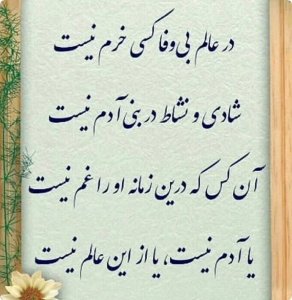 در عالم بی‌وفا کسی خرم نیست
شادی و نشاط در بنی آدم نیست
آن کس که درین زمانه او را غم نیست
یا آدم نیست، یا از این عالم نیست